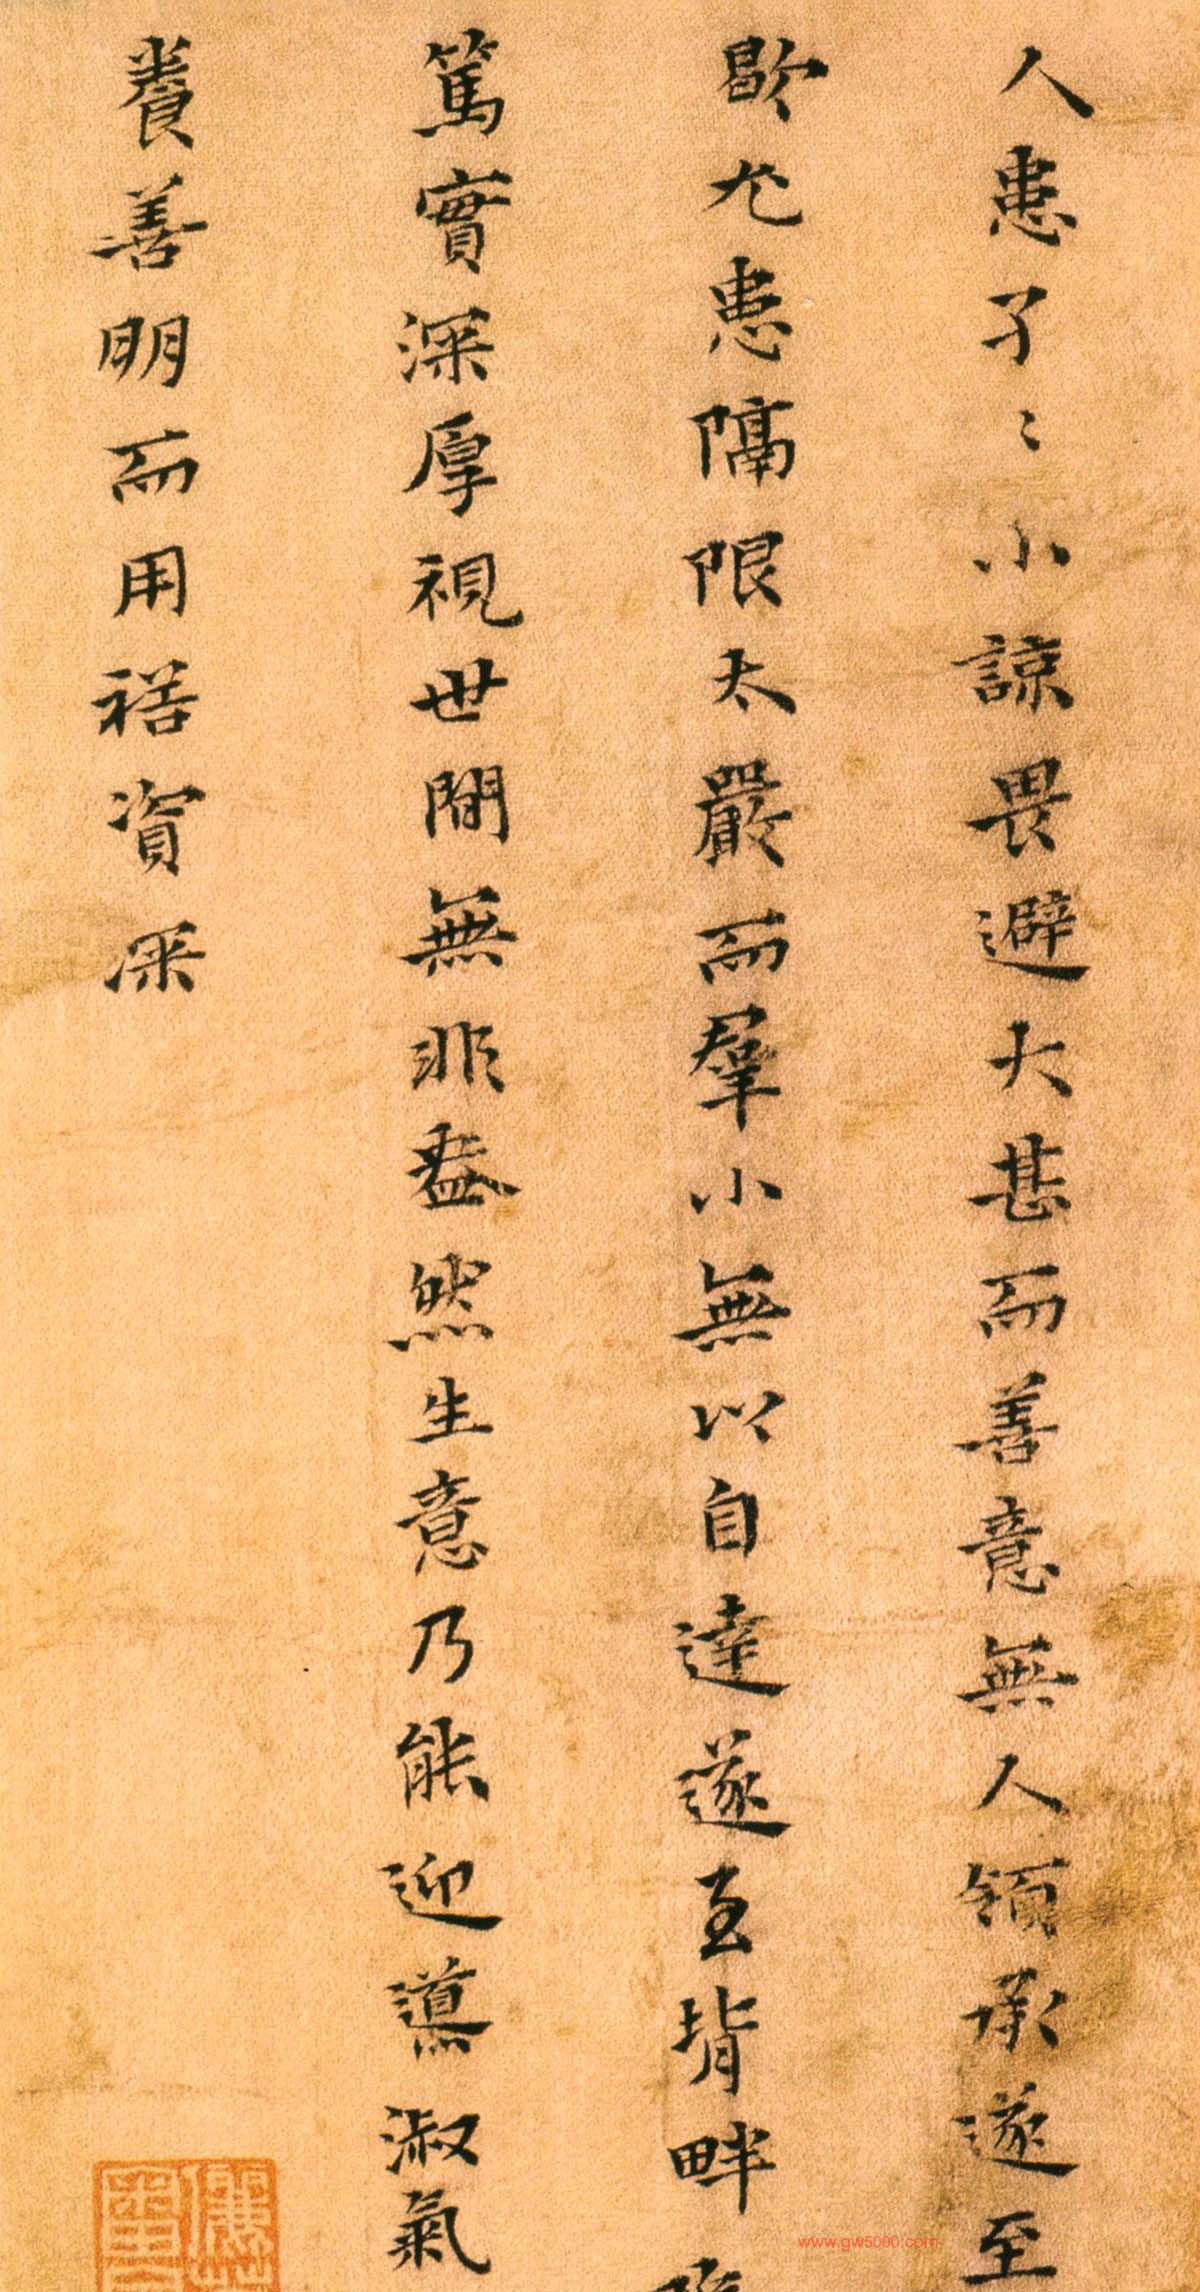 人患孑〻小諒畏避大甚而善意無人領承遂至
歇尤患隔限太嚴而羣小無以自達遂至背畔
篤實深厚視世間無非盎然生意乃能迎導淑氣
養善明而用禧資深
www.gw5000.com